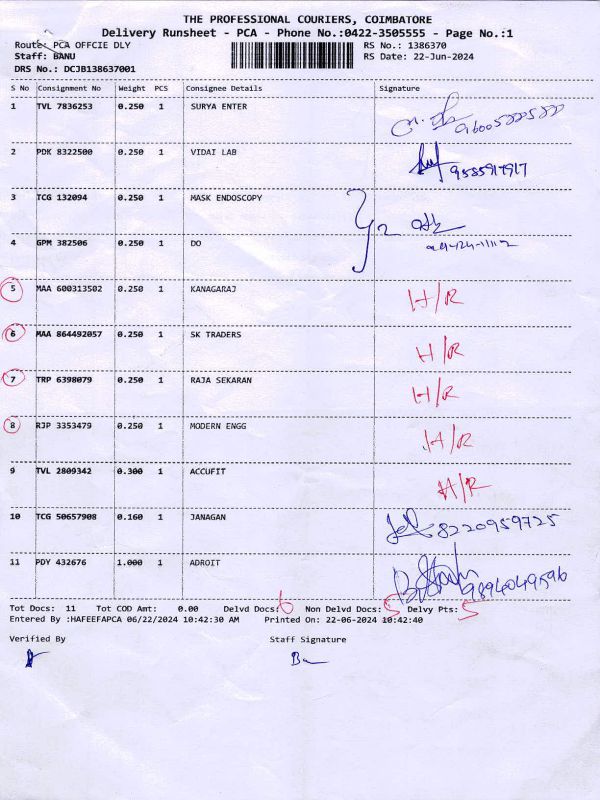 THE PROFESSIONAL COURIERS, COIMBATORE
Delivery Runsheet - PCA - Phone No.:0422-3505555 - Page No.:1
Route: PCA OFFCIE DLY RS No.: 1386370
Staff: BANU RS Date: 22-Jun-2024
DRS No.: DCJB138637001
S No Consignment No Weight PCS Consignee Details Signature
1 TVL 7836253 0.250 1 SURYA ENTER
2 PDK 8322500 0.250 1 VIDAI LAB
3 TCG 132094 0.250 1 MASK ENDOSCOPY
4 GPM 382506 0.250 1 DO
5 MAA 600313502 0.250 1 KANAGARAJ H/R
6 MAA 864492057 0.250 1 SK TRADERS H/R
7 TRP 6398079 0.250 1 RAJA SEKARAN H/R
8 RJP 3353479 0.250 1 MODERN ENGG H/R
9 TVL 2809342 0.300 1 ACCUFIT H/R
10 TCG 50657908 0.160 1 JANAGAN 8220959725
11 PDY 432676 1.000 1 ADROIT 9894049596
Tot Docs: 11 Tot COD Amt: 0.00 Delvd Docs: 6 Non Delvd Docs: 5 Delvy Pts: 5
Entered By :HAFEEFAPCA 06/22/2024 10:42:30 AM Printed On: 22-06-2024 10:42:40
Verified By Staff Signature